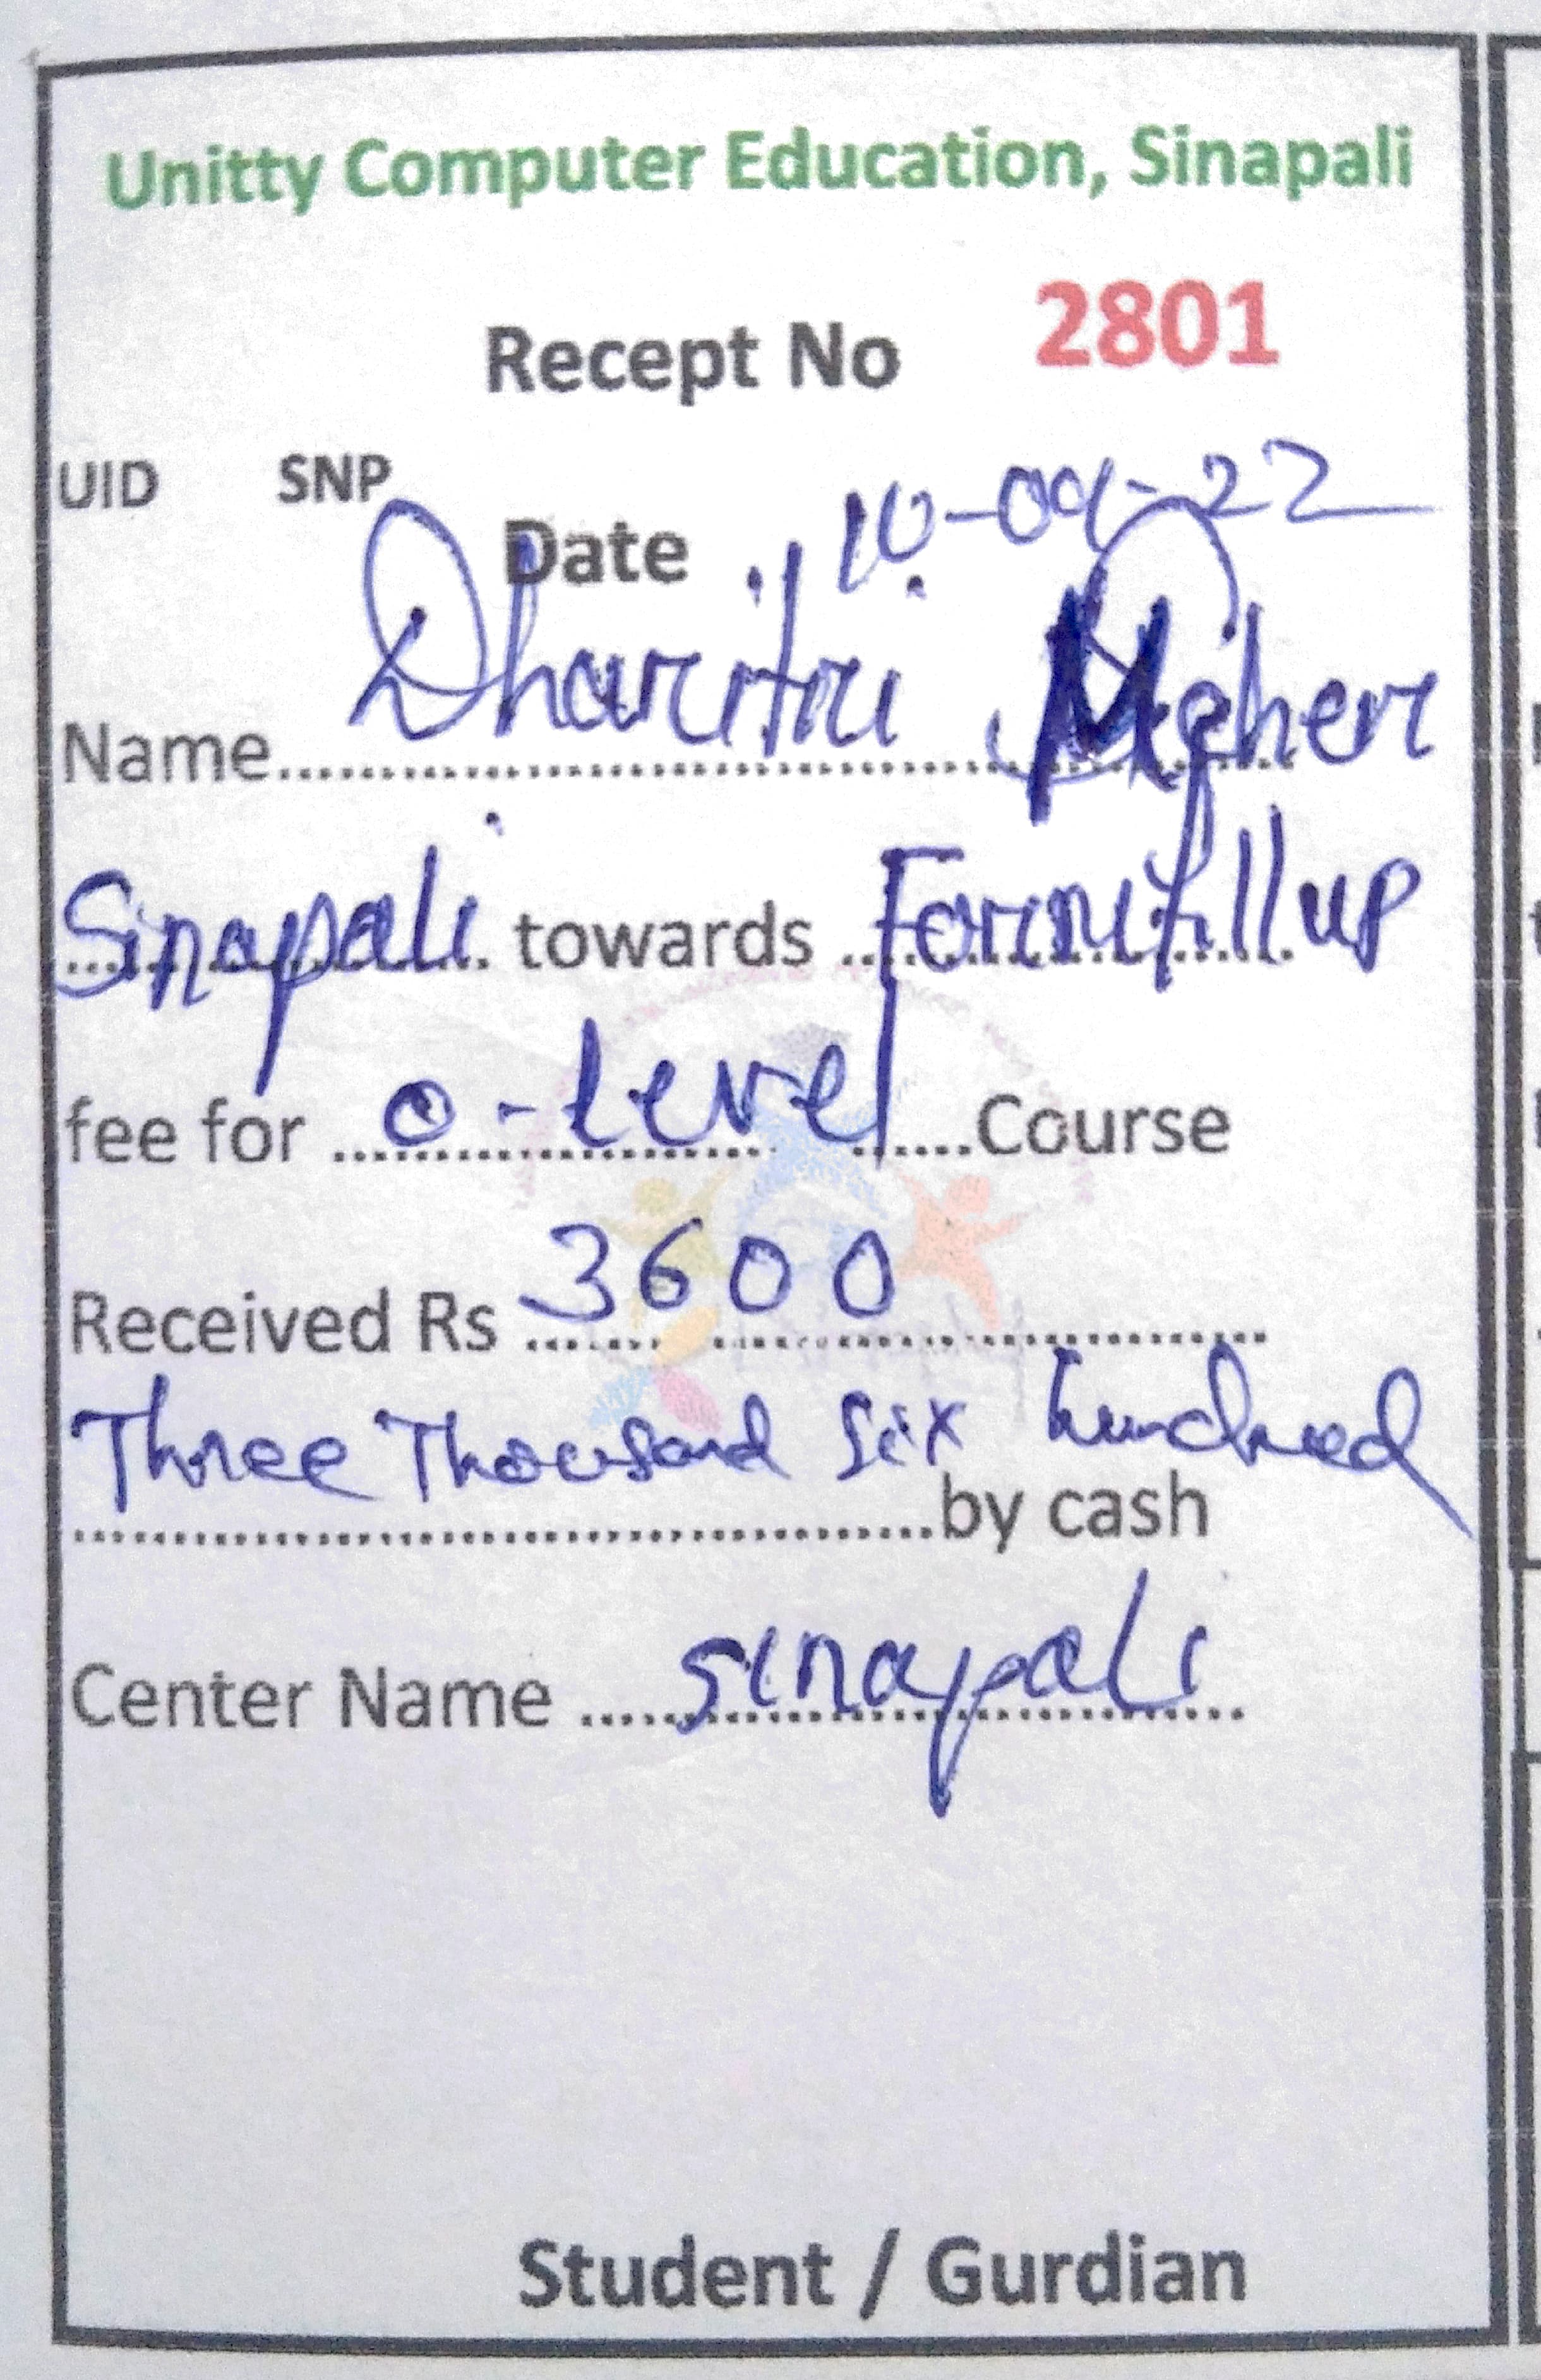 Unitty Computer Education, Sinapali
Recept No 2801
UID SNP
Date 10-09-22
Name Dharitri Meher
Sinapali towards Formfillup
fee for O-Level Course
Received Rs 3600
Three Thousand Six hundred
by cash
Center Name Sinapali
Student / Gurdian